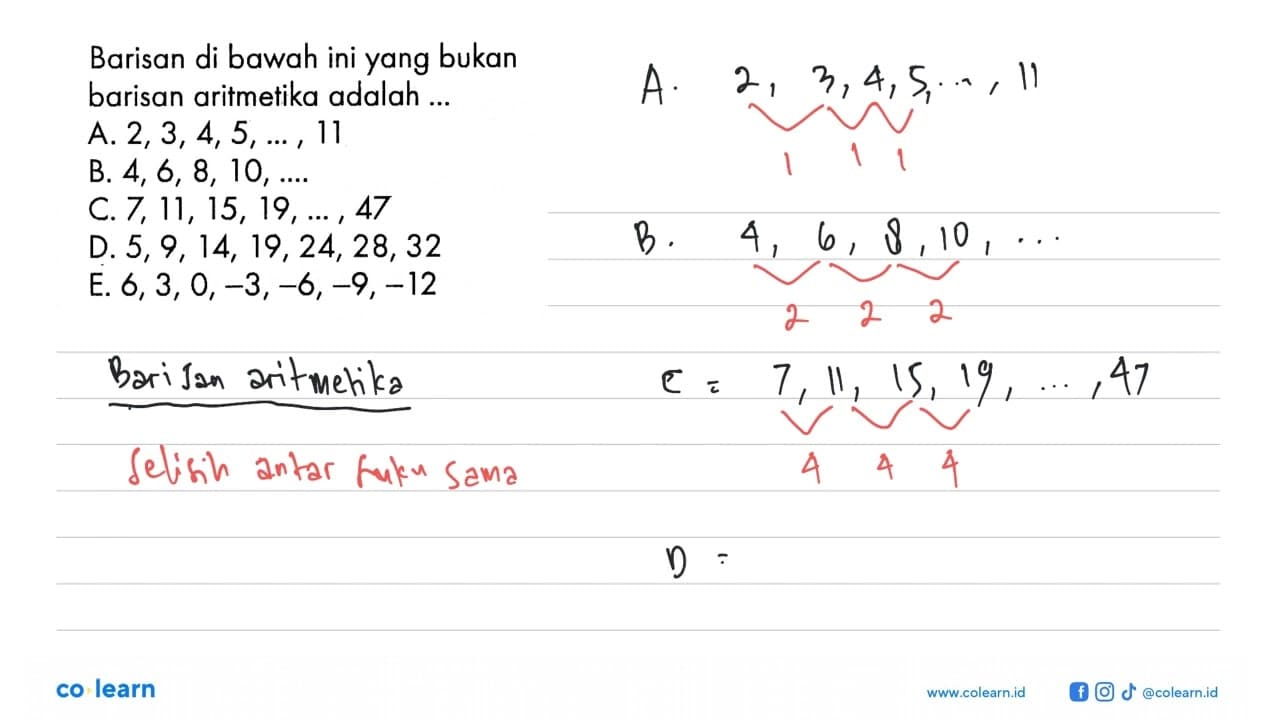 Barisan di bawah ini yang bukan
barisan aritmetika adalah ...
A. 2, 3, 4, 5, ... , 11
B. 4, 6, 8, 10, ....
C. 7, 11, 15, 19, ... , 47
D. 5, 9, 14, 19, 24, 28, 32
E. 6, 3, 0, –3, –6, –9, –12
Barisan aritmetika
Selisih antar suku sama
A. 2, 3, 4, 5, ... , 11
1 1 1
B. 4, 6, 8, 10, ...
2 2 2
C = 7, 11, 15, 19, ... , 47
4 4 4
D =
co learn
www.colearn.id
@colearn.id